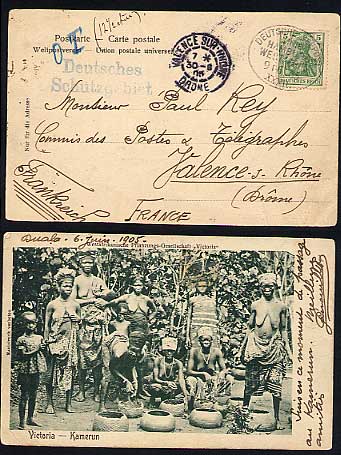 (12 Cents)
Postkarte — Carte postale
Weltpostverein — Union postale universelle
Deutsches
Schutzgebiet
VALENCE-SUR-RHONE
7 *
30-6
05
DROME
DEUTSCHE
5
Nur für die Adresse
Monsieur Paul Rey
Commis des Postes & Télégraphes
Valence-s-Rhône
(Drôme)
Frankreich
FRANCE
Duala - 6 Juin 1905 -
Westafrikanische Pflanzungs-Gesellschaft „Victoria“
Nachdruck verboten
Victoria — Kamerun
Suis en ce moment de passage
au Kamerun.
amitiés